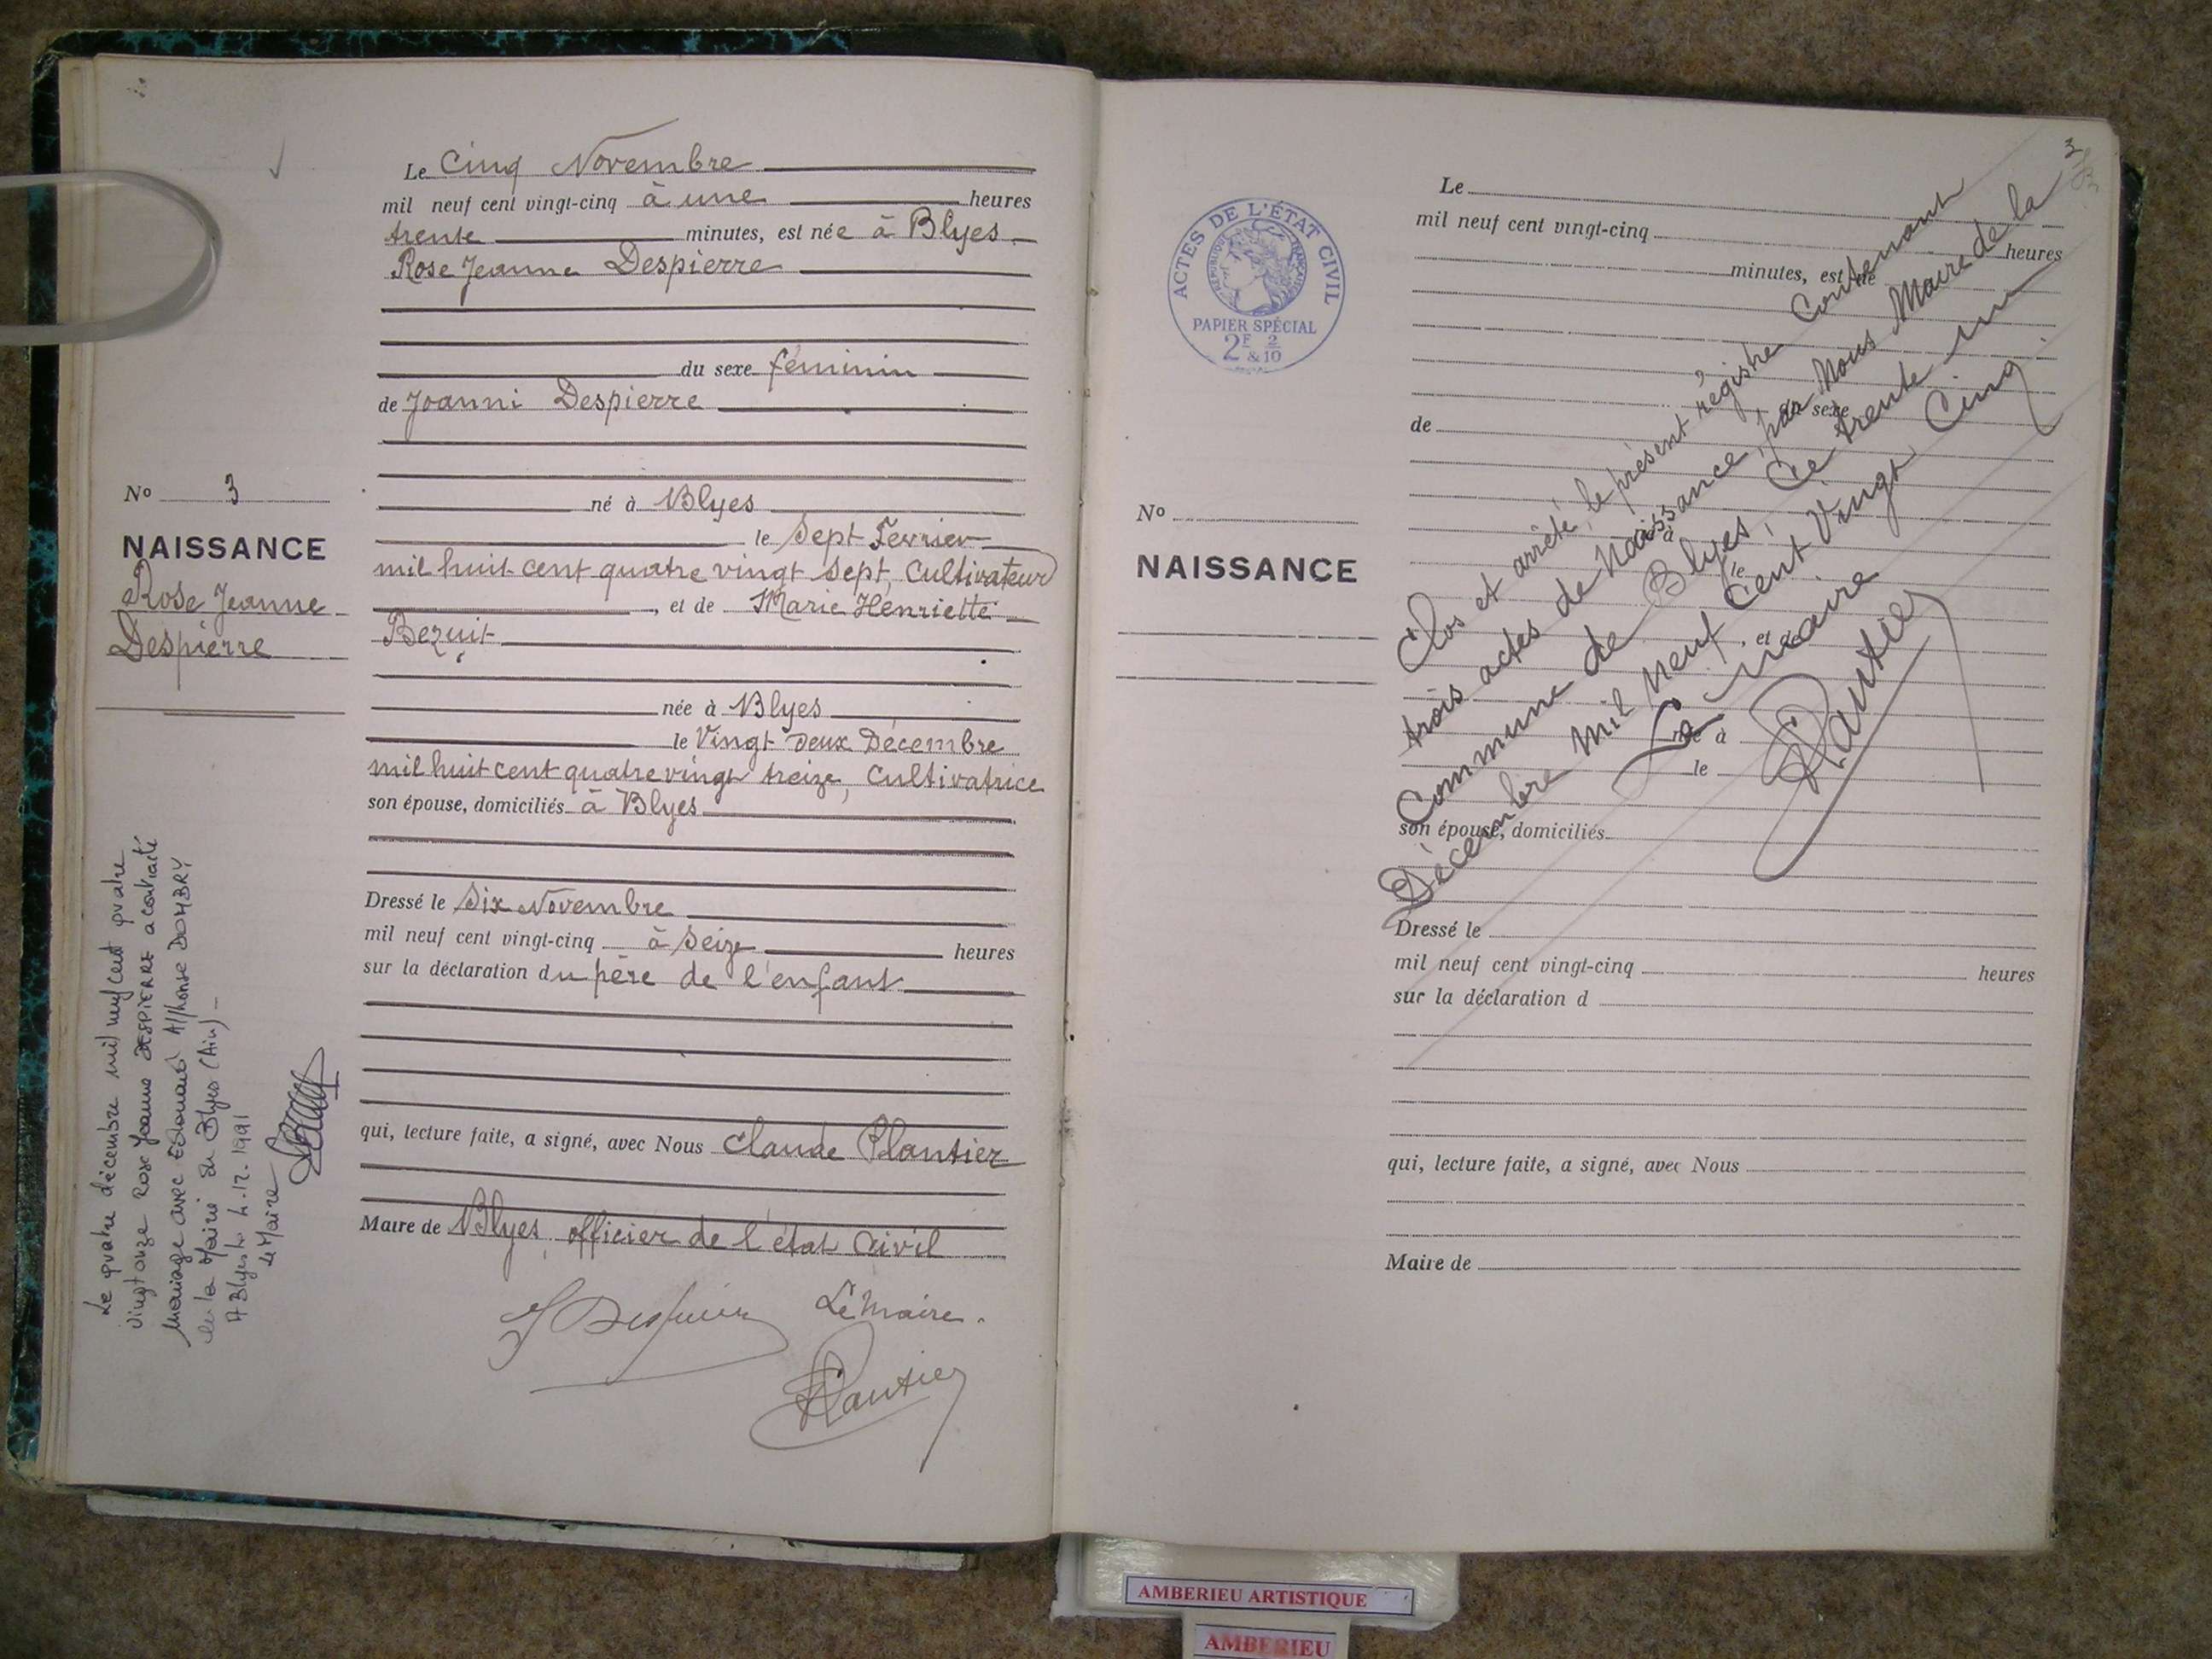 Le Cinq Novembre
mil neuf cent vingt-cinq à une heures
trente minutes, est née à Blyes
Rose Jeanne Despierre
du sexe féminin
de Joanni Despierre
né à Blyes
le Sept Fevrier
mil huit cent quatre vingt sept, Cultivateur
, et de Marie Henriette
Bezuit
née à Blyes
le Vingt Deux Décembre
mil huit cent quatre vingt treize, Cultivatrice
son épouse, domiciliés à Blyes
Dressé le Six Novembre
mil neuf cent vingt-cinq à Seize heures
sur la déclaration du père de l'enfant
qui, lecture faite, a signé, avec Nous Claude Plantier
Maire de Blyes, officier de l'état civil
J Despierre Le Maire.
Plantier
No 3
NAISSANCE
Rose Jeanne
Despierre
Le quatre décembre mil neuf cent quatre
vingt onze Rose Jeanne DESPIERRE a contracté
mariage avec Edouard Alphonse DOMBRY
en la Mairie de Blyes (Ain)
A Blyes le 4.12.1991
Le Maire
3
ACTES DE L'ÉTAT CIVIL
RÉPUBLIQUE FRANÇAISE
PAPIER SPÉCIAL
2F 2
& 10
No
NAISSANCE
Le
mil neuf cent vingt-cinq
heures
minutes, est né
du sexe
de
né à
le
, et de
née à
le
son épouse, domiciliés
Dressé le
mil neuf cent vingt-cinq heures
sur la déclaration d
qui, lecture faite, a signé, avec Nous
Maire de
Clos et arrêté, le présent régistre Contenant
trois actes de Naissance, par Nous Maire de la
Commune de Blyes, Ce trente un
Décembre Mil Neuf Cent Vingt Cinq.
Le Maire
Plantier
AMBERIEU ARTISTIQUE
AMBERIEU